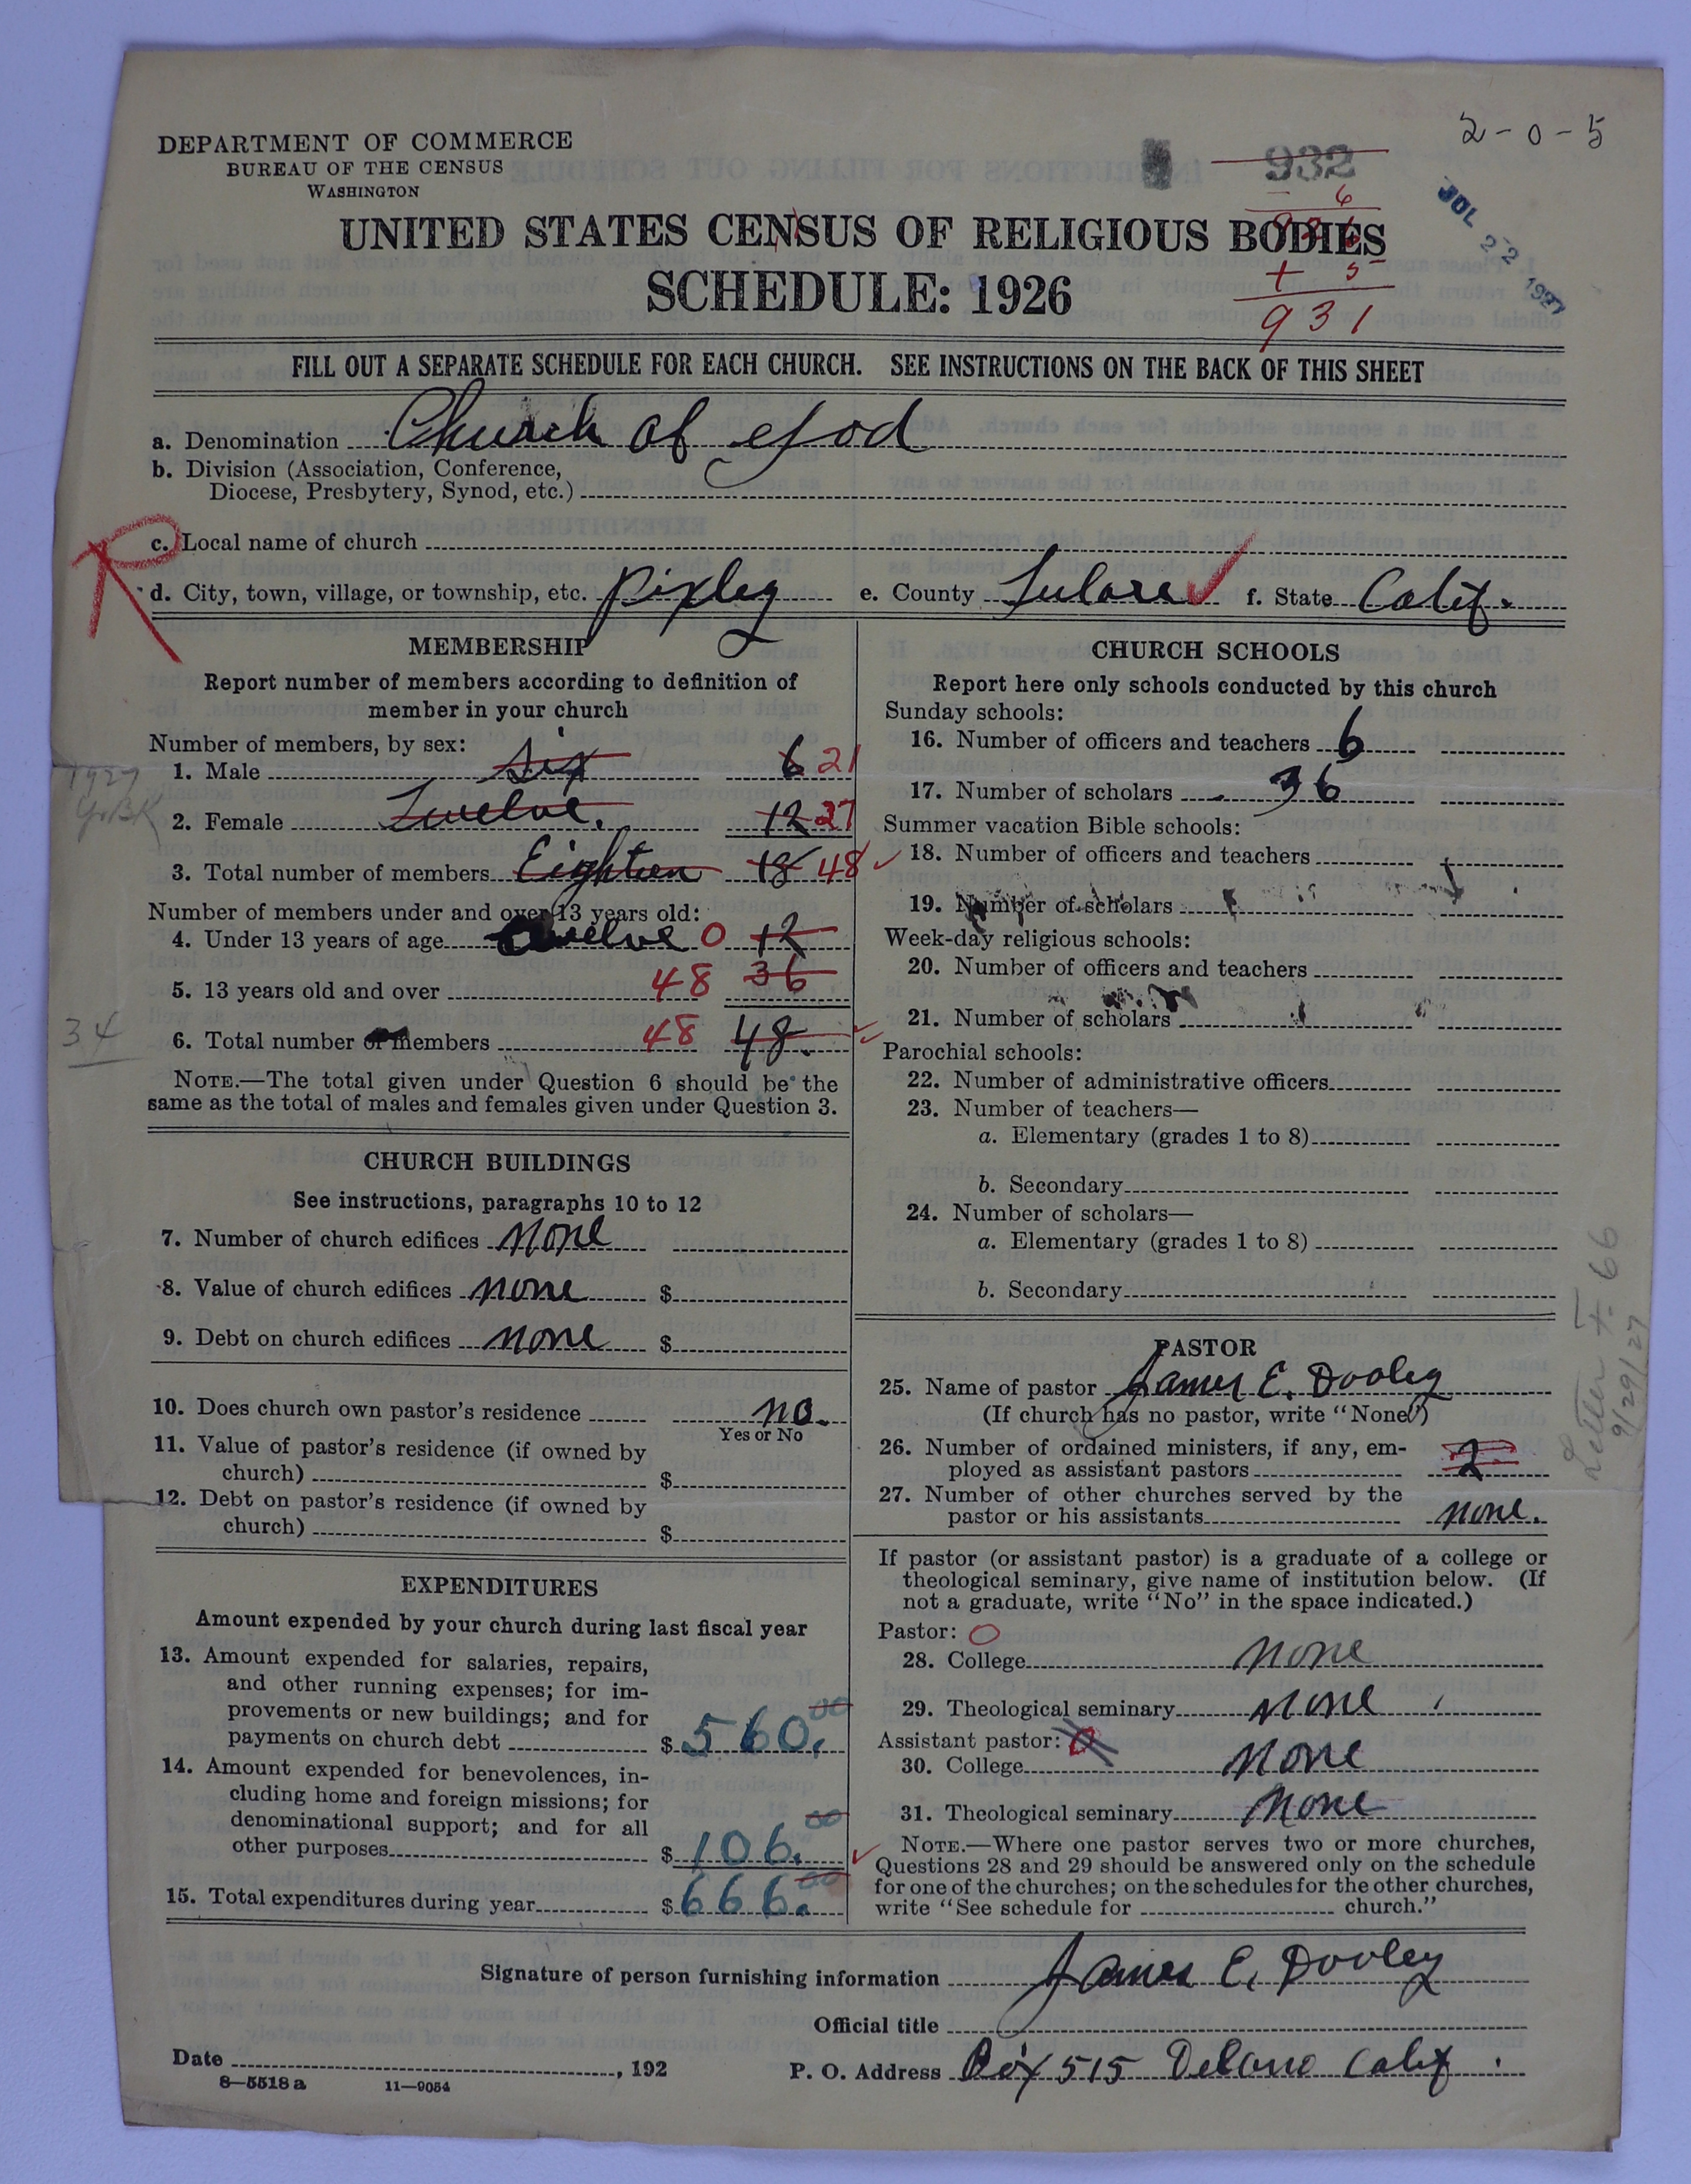 2-0-5
DEPARTMENT OF COMMERCE
BUREAU OF THE CENSUS
WASHINGTON
932
6
JUL 22 1927
UNITED STATES CENSUS OF RELIGIOUS BODIES
+ 5
931
SCHEDULE: 1926
FILL OUT A SEPARATE SCHEDULE FOR EACH CHURCH. SEE INSTRUCTIONS ON THE BACK OF THIS SHEET
a. Denomination Church of God
b. Division (Association, Conference,
Diocese, Presbytery, Synod, etc.)
R
c. Local name of church
d. City, town, village, or township, etc. Pixley e. County Tulare f. State Calif.
MEMBERSHIP
Report number of members according to definition of
member in your church
Number of members, by sex:
1. Male six 6 21
1927
2. Female Twelve. 12 27
3. Total number of members Eighteen 18 48
Number of members under and over 13 years old:
4. Under 13 years of age twelve 0 12
5. 13 years old and over 48 36
34
6. Total number of members 48 48.
NOTE.—The total given under Question 6 should be the
same as the total of males and females given under Question 3.
CHURCH BUILDINGS
See instructions, paragraphs 10 to 12
7. Number of church edifices none
8. Value of church edifices none $
9. Debt on church edifices none $
10. Does church own pastor's residence no.
Yes or No
11. Value of pastor's residence (if owned by
church) $
12. Debt on pastor's residence (if owned by
church) $
EXPENDITURES
Amount expended by your church during last fiscal year
13. Amount expended for salaries, repairs,
and other running expenses; for im-
provements or new buildings; and for
payments on church debt $ 560.00
14. Amount expended for benevolences, in-
cluding home and foreign missions; for
denominational support; and for all
other purposes $ 106.00
15. Total expenditures during year $ 666.00
CHURCH SCHOOLS
Report here only schools conducted by this church
Sunday schools:
16. Number of officers and teachers 6
17. Number of scholars 36
Summer vacation Bible schools:
18. Number of officers and teachers
19. Number of scholars
Week-day religious schools:
20. Number of officers and teachers
21. Number of scholars
Parochial schools:
22. Number of administrative officers
23. Number of teachers—
a. Elementary (grades 1 to 8)
b. Secondary
24. Number of scholars—
a. Elementary (grades 1 to 8)
b. Secondary
Letter F. 66
9/29/27
PASTOR
25. Name of pastor James E. Dooley
(If church has no pastor, write "None")
26. Number of ordained ministers, if any, em-
ployed as assistant pastors 2
27. Number of other churches served by the
pastor or his assistants none.
If pastor (or assistant pastor) is a graduate of a college or
theological seminary, give name of institution below. (If
not a graduate, write "No" in the space indicated.)
Pastor: 0
28. College none
29. Theological seminary none
Assistant pastor: 0
30. College none
31. Theological seminary none
NOTE.—Where one pastor serves two or more churches,
Questions 28 and 29 should be answered only on the schedule
for one of the churches; on the schedules for the other churches,
write "See schedule for church."
Signature of person furnishing information James E. Dooley
Official title
Date , 192 P. O. Address Box 515 Delano Calif.
8—5518 a 11—9054